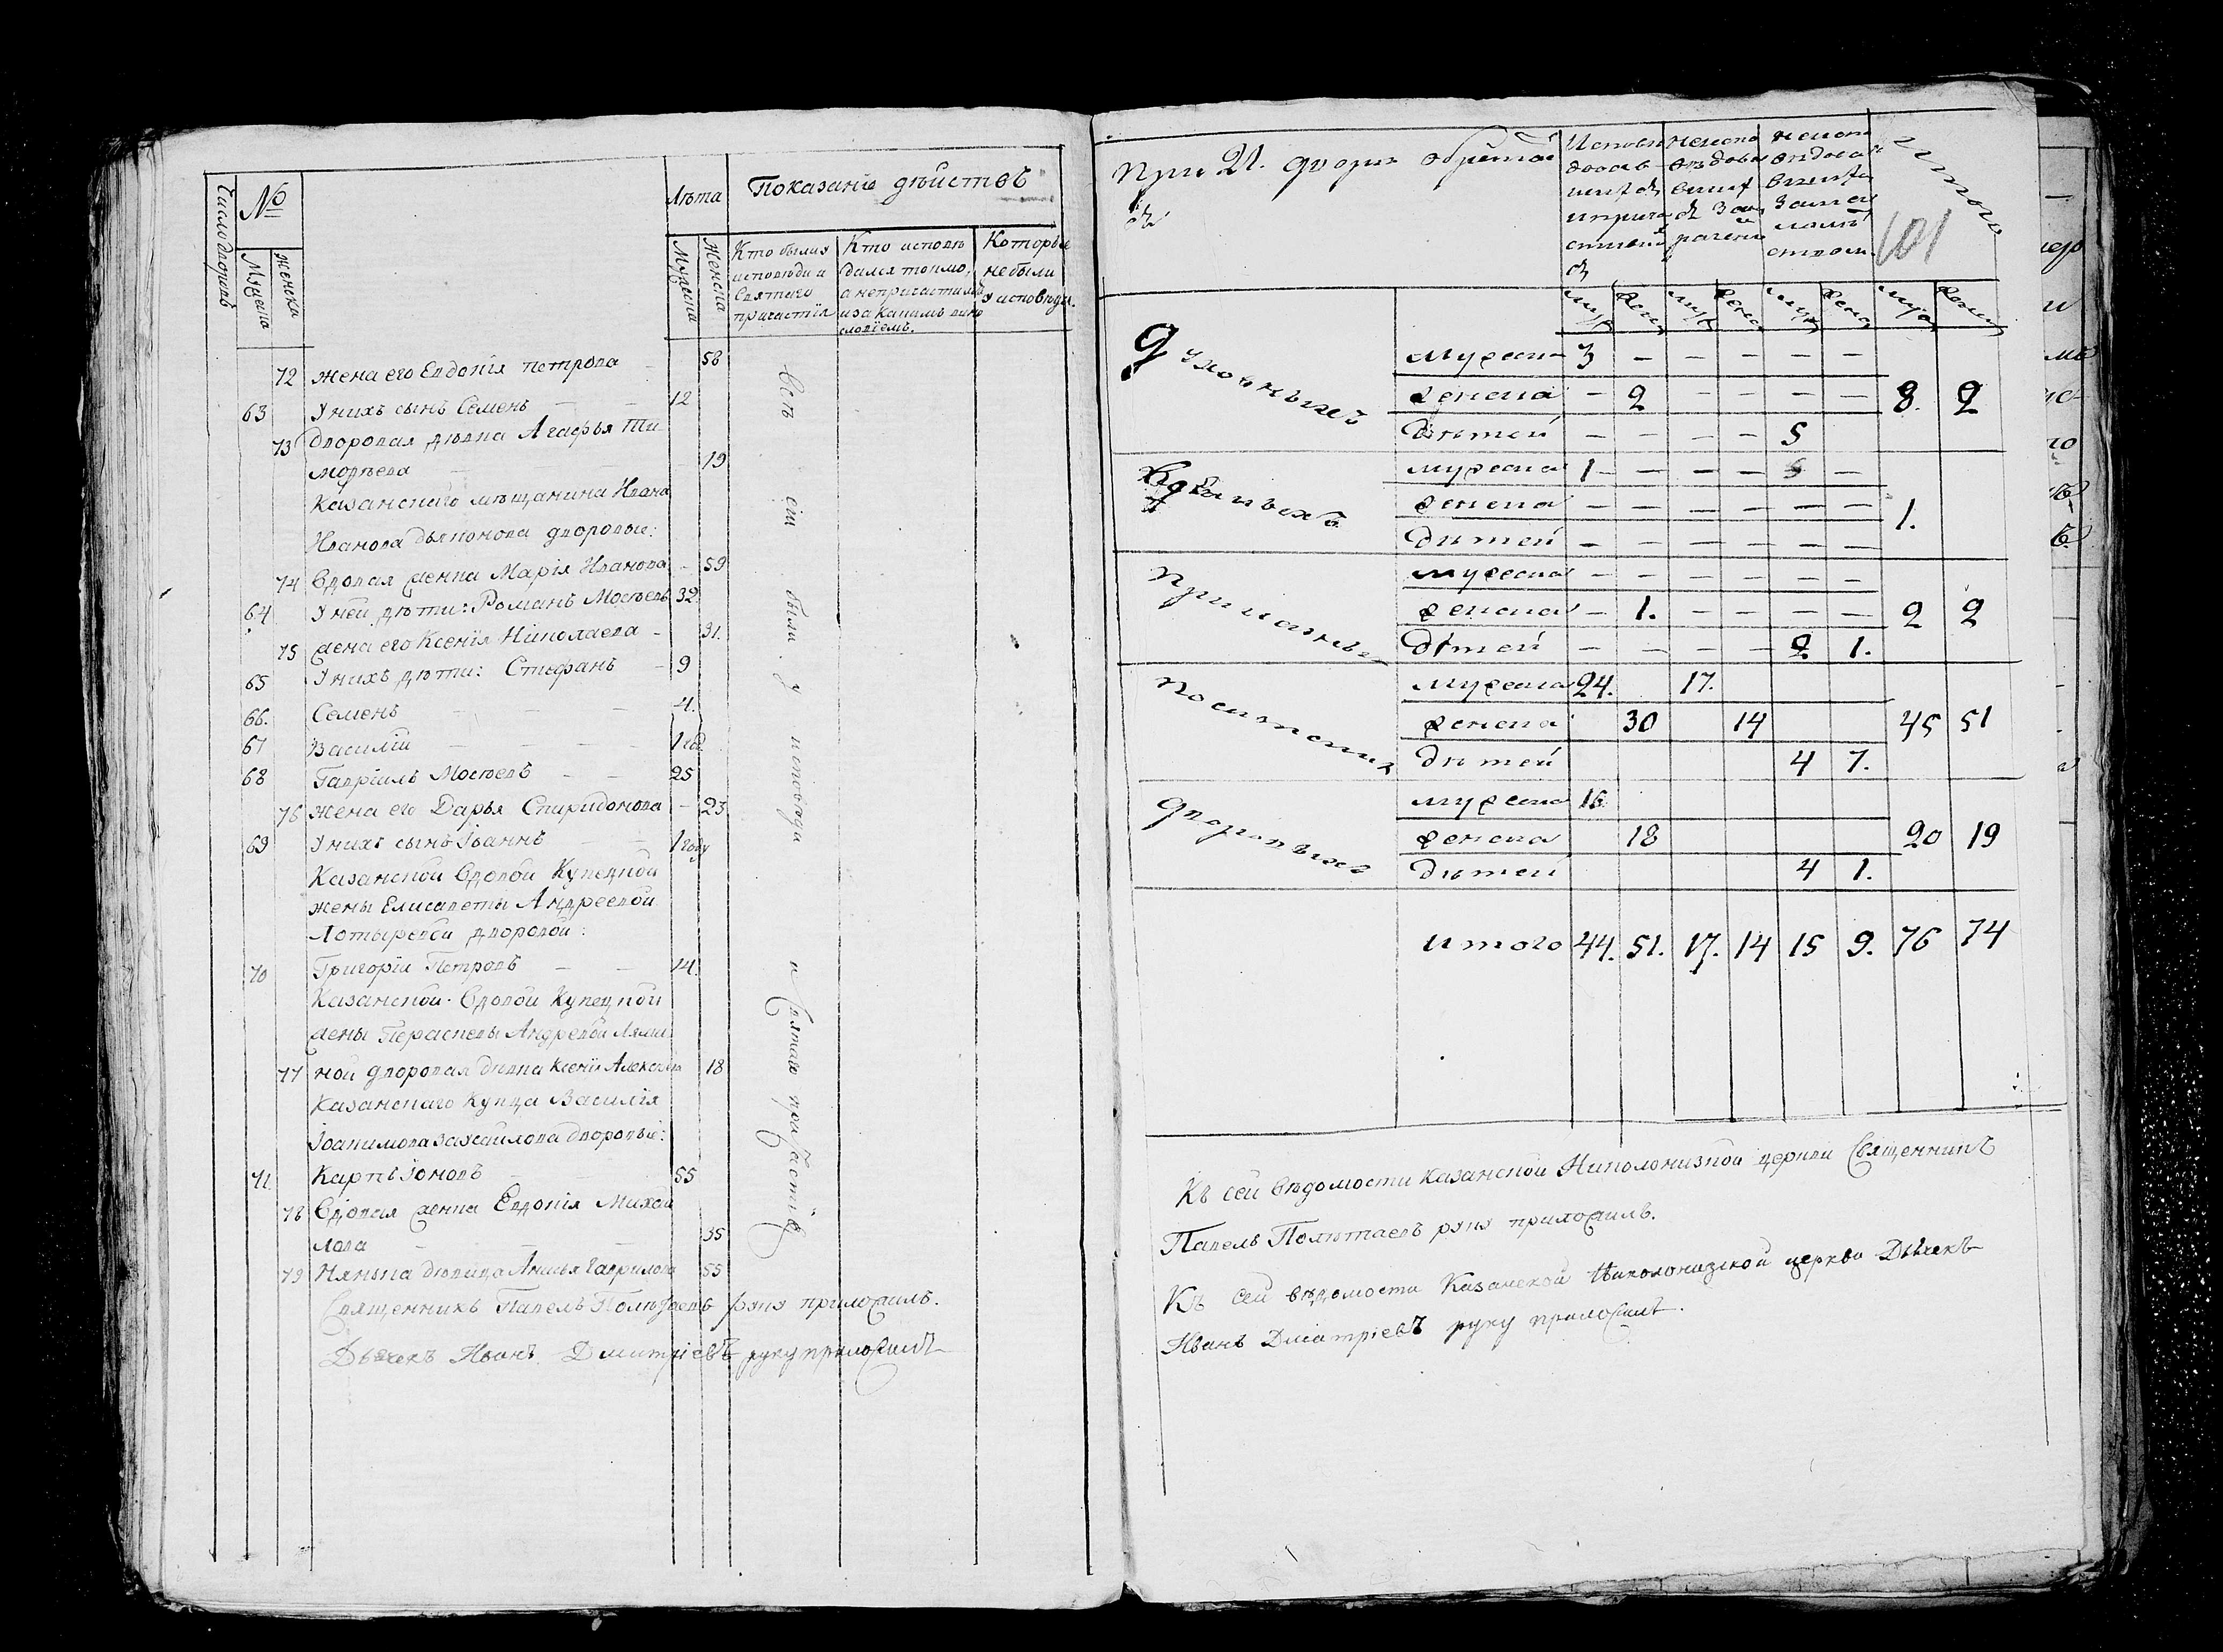 Число дворовъ
№
Мужеска
Женска
Лѣта
Мужеска
Женска
Показаніе дѣйствъ
Кто былъ у
исповѣди и
святаго
причастія
Кто исповѣ
дался токмо,
а непричастился
и за какимъ вино
словіемъ.
Которые
небыли
у исповѣди.
72 жена его Евдокія петрова — 58
63 У нихъ сынъ Семенъ — — 12
73 Дворовая дѣвка Агафья Ти
моѳеева — 19
Казанскаго мѣщанина Ивана
Иванова Дьяконова дворовые:
74 Вдовая женка Марія Иванова — 59
64 У ней дѣти: Романъ Мосѣевъ 32
75 жена его Ксенія Николаева — 31.
65 У нихъ дѣти: Стефанъ — 9
66. Семенъ — — — 4.
67 Василій — — — 1 год
68 Гавріилъ Мосѣевъ — — 25
76 жена его Дарья Спиридонова — 23
69 У нихъ сынъ Іоаннъ — — 1 году
Казанской Вдовой Купецкой
жены Елисаветы Андреевой
Котыревой дворовой:
70 Григорій Петровъ — — 14.
Казанской Вдовой Купецкой
жены Параскевы Андревой Лями
77 ной дворовая дѣвка Ксенія Алексѣева 18
Казанскаго Купца Василія
Іоакимова Захайлова дворовые:
71. Карпъ Іоновъ — — 55
78 Вдовая женка Евдокія Михай
лова — — — 35
79 Нянька дѣвица Анисья Гаврилова 55
Всѣ сіи были у исповѣди и святаго причастія
Священникъ Павелъ Полѣтаевъ руку приложилъ.
Дьячекъ Иванъ Дмитріевъ руку приложилъ
При 21. дворѣ обрѣтает
ся
Исповѣ
довав
шихся
и прича
стивших
ся
Неиспо
вѣдова
вшихся
Неиспо
вѣдова
вшихся
за мало
лѣт
ством.
Итого
101
муж жен муж жен муж жен муж женс
Духовныхъ
мужеска 3 — — — — —
женска — 2 — — — — 8. 2
дѣтей — — — — 5
мужеска 1 — — — — 5 —
женска — — — — — — 1.
дѣтей — — — — — —
Приказныхъ
мужеска — — — — — —
женска — 1. — — — — 2 2
дѣтей — — — — 2 1.
Посадскихъ
мужеска 24. 17.
женска 30 14 45 51
дѣтей 4 7.
Дворовыхъ
мужеска 16
женска 18 20 19
дѣтей 4 1.
Итого 44. 51. 17. 14 15 9. 76 74
Къ сей вѣдомости Казанской Николонизкой церкви Священникъ
Павелъ Полѣтаевъ руку приложилъ.
Къ сей вѣдомости Казанской Николонизкой церкви Дьячекъ
Иванъ Дмитріевъ руку приложилъ.